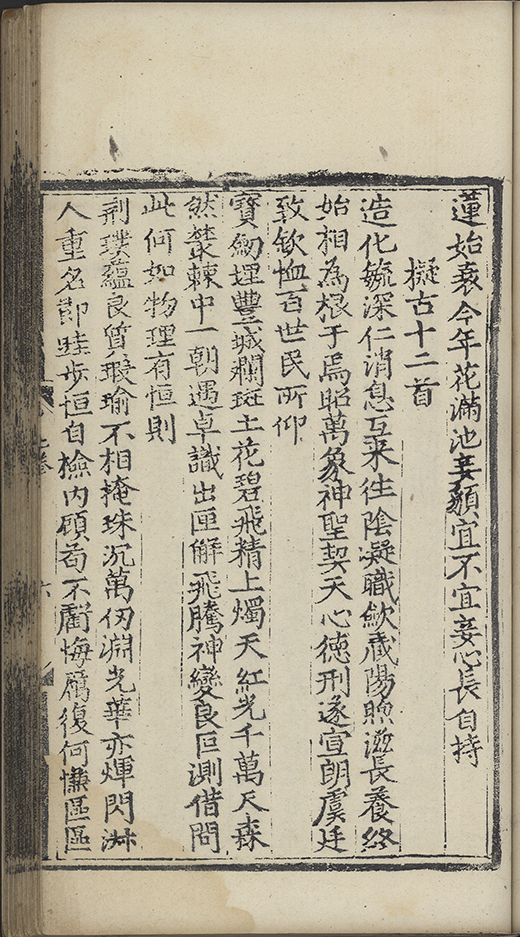 蓮始衰今年花滿池妾顏宜不宜妾心長自持
擬古十二首
造化毓深仁消息互来往陰凝職歛藏陽煦滋長養終
始相為根于焉昭萬象神聖契天心德刑遂宣朗虞廷
致欽恤百世民所仰
寶劒埋豐城斕斑土花碧飛精上燭天紅光千萬尺森
然叢棘中一朝遇卓識出匣解飛騰神變良叵測借問
此何如物理有恒則
荊璞蘊良質瑕瑜不相掩珠沉萬仞淵光華亦煇閃淋
人重名節跬步恒自檢内顧苟不虧悔腐復何慊區區
上卷
六